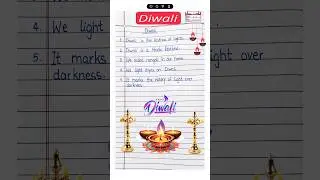 Diwali
Diwali
1. Diwali is the festival of lights.
2. Diwali is a Hindu festival.
3. We make rangoli in our home.
4. We light diyas on Diwali.
5. It marks the victory of light over
darkness.
Diwali
4. We light
5. It marks
light over
darkness.